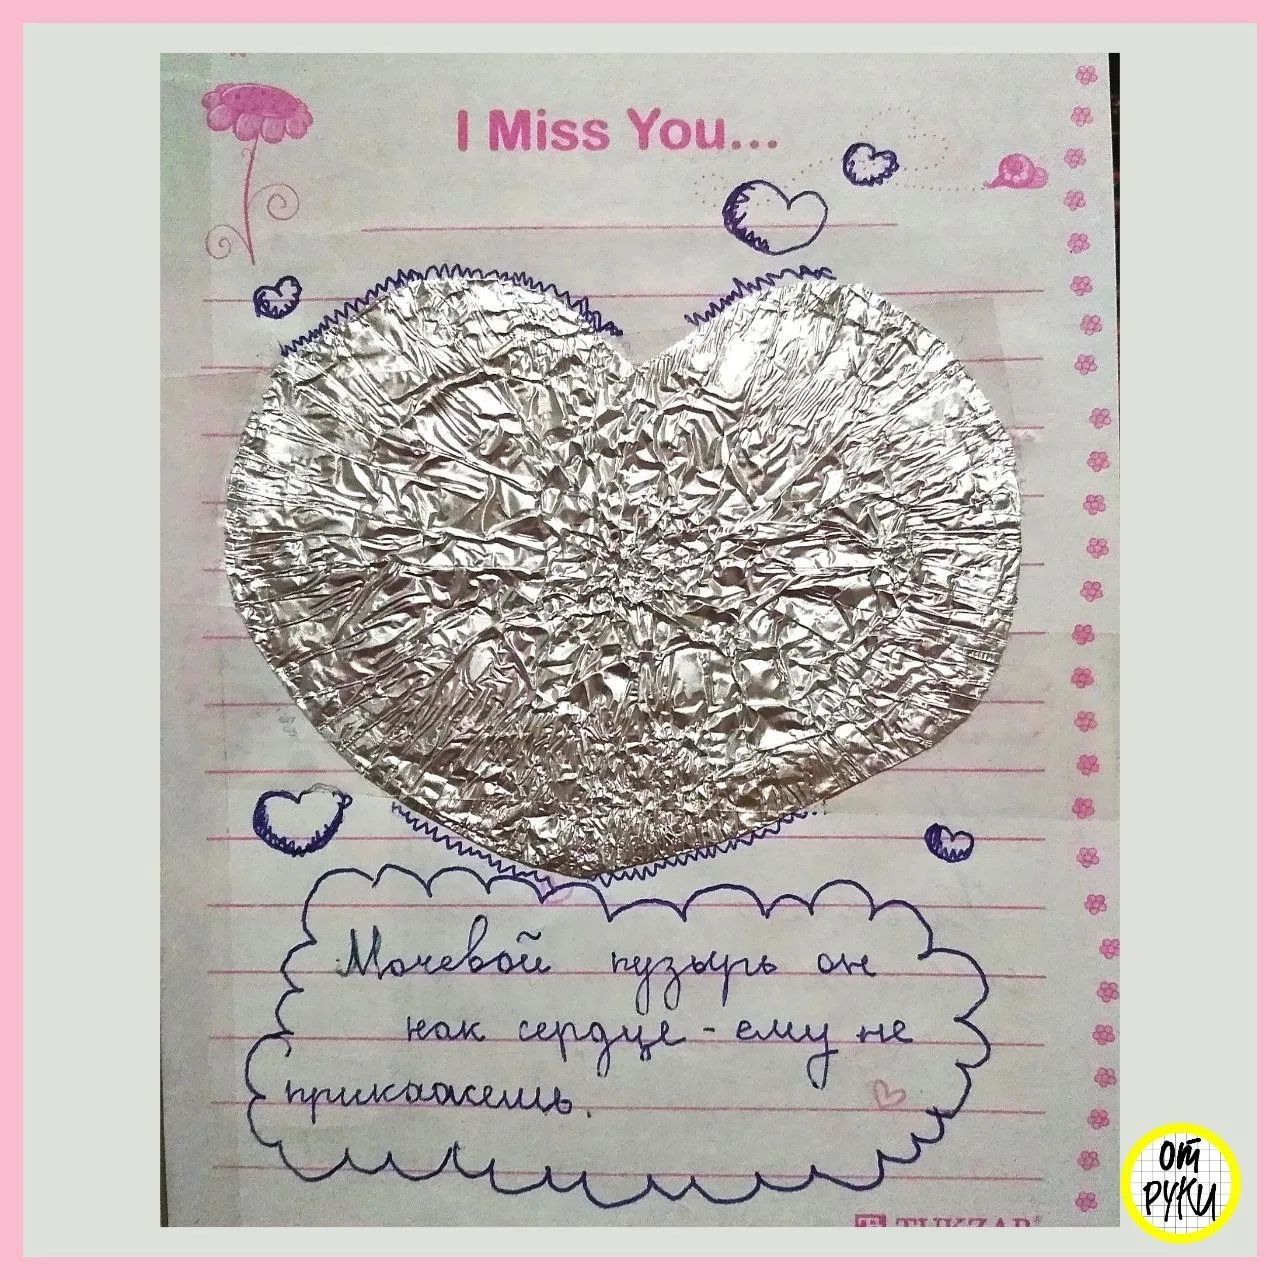 I Miss You...
Мочевой пузырь он
как сердце - ему не
прикажешь.
TUKZAR
от
руки